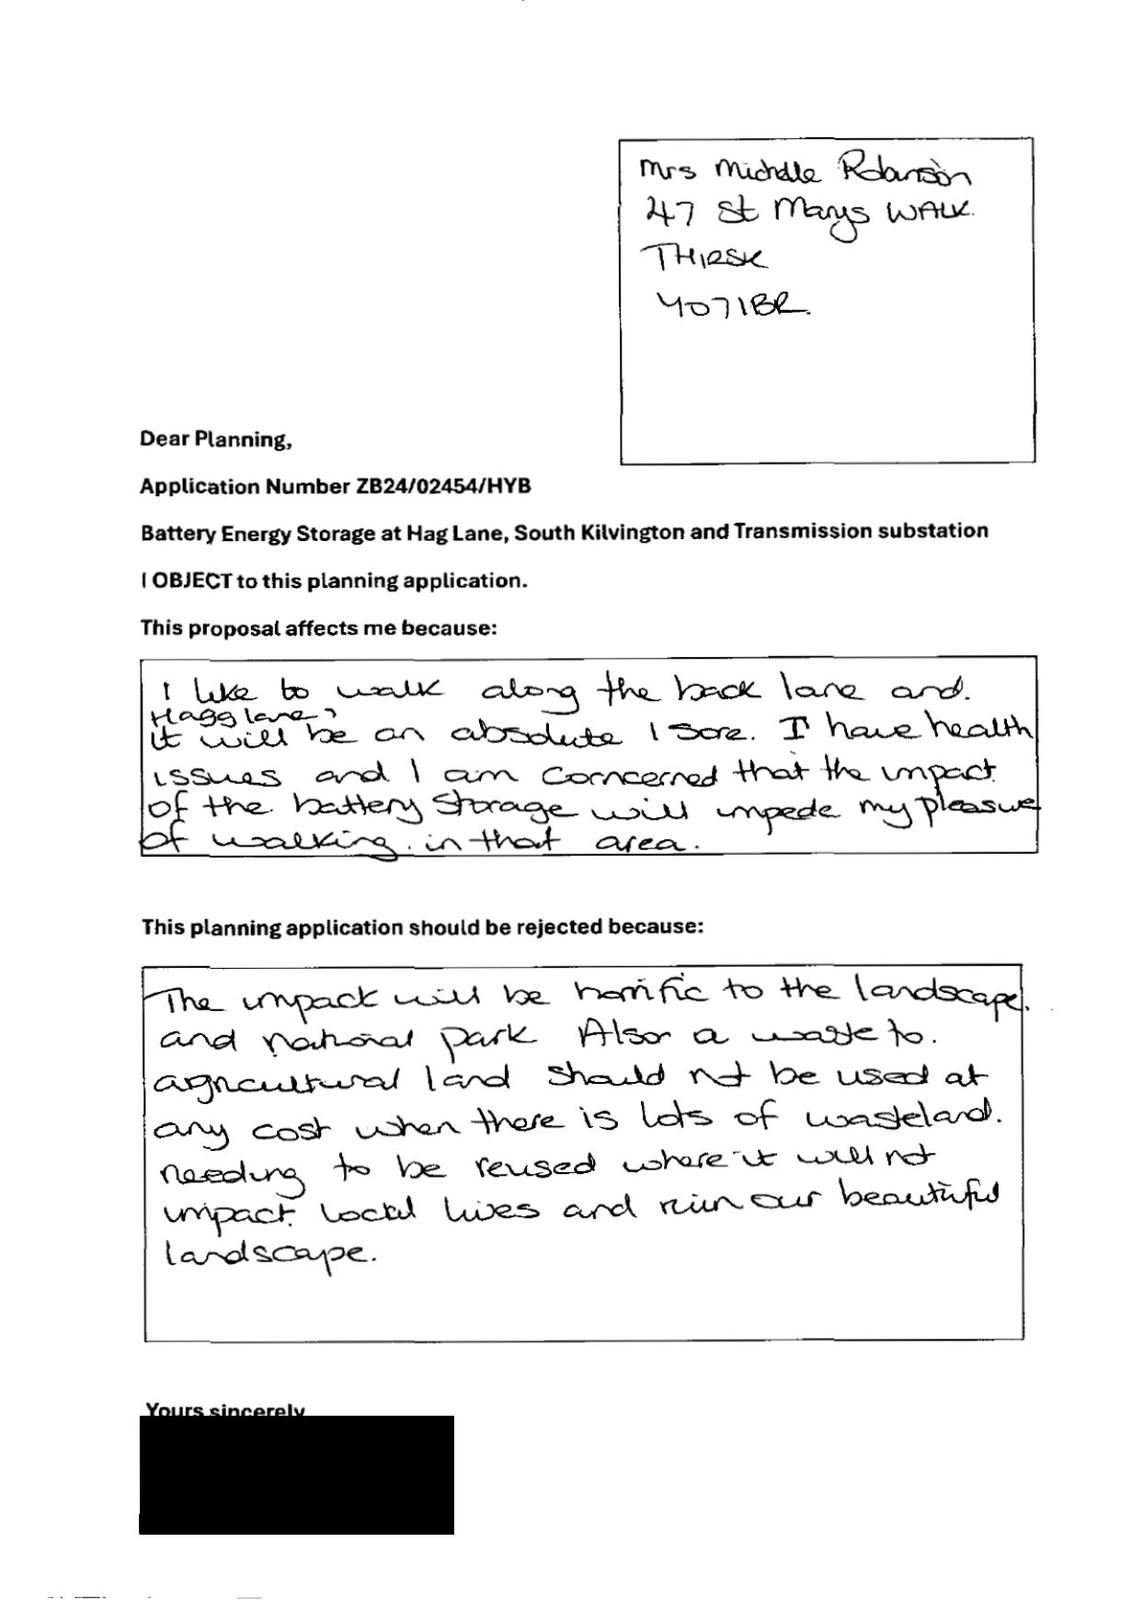 Mrs Michelle Robinson
47 St Marys WALK.
THIRSK
YO71BR.
Dear Planning,
Application Number ZB24/02454/HYB
Battery Energy Storage at Hag Lane, South Kilvington and Transmission substation
I OBJECT to this planning application.
This proposal affects me because:
I like to walk along the back lane and.
Hagg lane,
it will be an absolute I sore. I have health
issues and I am concerned that the impact
of the battery storage will impede my pleasure
of walking. in that area.
This planning application should be rejected because:
The impact will be horrific to the landscape.
and national park Also a waste to.
agricultural land should not be used at
any cost when there is lots of wasteland.
needing to be reused where it will not
impact. local lives and ruin our beautiful
landscape.
Yours sincerely